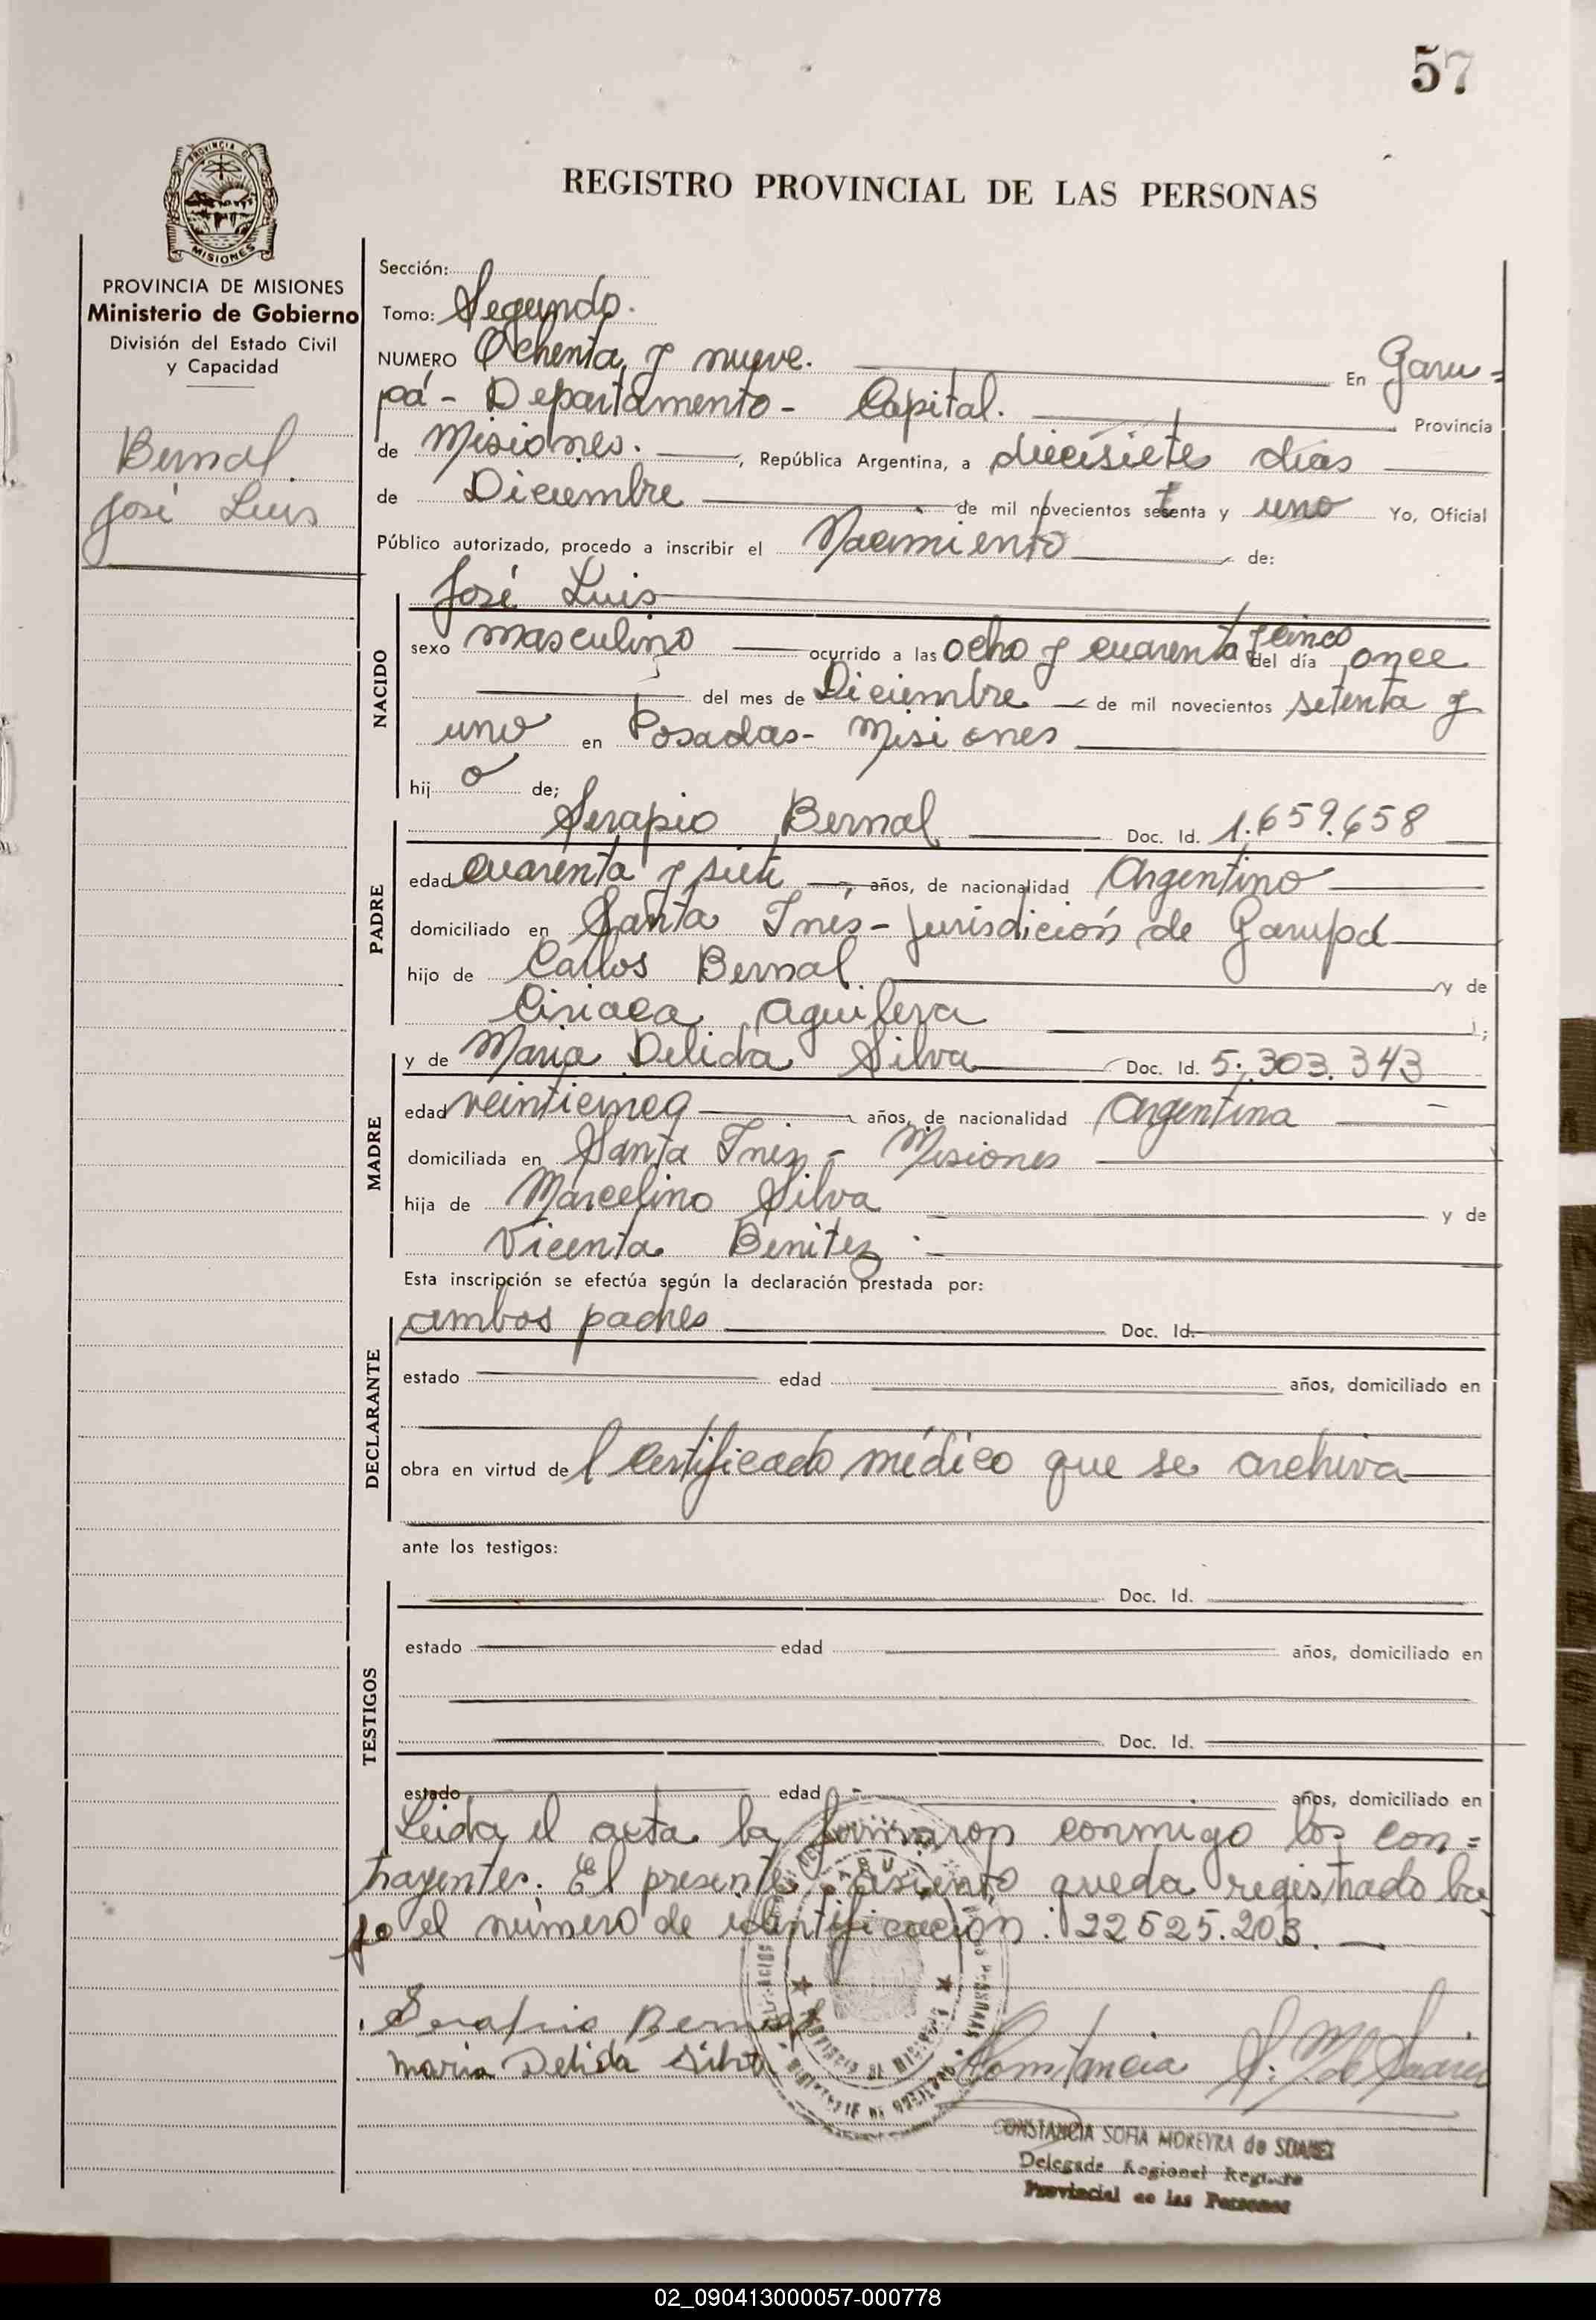 57
PROVINCIA DE
MISIONES
REGISTRO PROVINCIAL DE LAS PERSONAS
PROVINCIA DE MISIONES
Ministerio de Gobierno
División del Estado Civil
y Capacidad
Bernal
José Luis
Sección:
Tomo: Segundo.
NUMERO Ochenta y nueve. En Garu=
pá - Departamento - Capital. Provincia
de Misiones. , República Argentina, a diecisiete días
de Diciembre de mil novecientos setenta y uno Yo, Oficial
Público autorizado, procedo a inscribir el Nacimiento de:
José Luis
NACIDO
sexo masculino ocurrido a las ocho y cuarenta y cinco del día once
del mes de Diciembre de mil novecientos setenta y
uno en Posadas - Misiones
hij o de;
PADRE
Serapio Bernal Doc. Id. 1.659.658
edad cuarenta y siete , años, de nacionalidad Argentino
domiciliado en Santa Inés - Jurisdición de Garupá
hijo de Carlos Bernal y de
Ciriaca Aguilera ;
MADRE
y de Maria Delida Silva Doc. Id. 5.303.343
edad veinticinco años, de nacionalidad Argentina
domiciliada en Santa Inés - Misiones
hija de Marcelino Silva y de
Vicenta Benitez
Esta inscripción se efectúa según la declaración prestada por:
DECLARANTE
ambos padres Doc. Id.
estado edad años, domiciliado en
obra en virtud de l certificado médico que se archiva
ante los testigos:
TESTIGOS
Doc. Id.
estado edad años, domiciliado en
Doc. Id.
estado edad años, domiciliado en
Leida el acta la firmaron conmigo los con=
trayentes. El presente asiento queda registrado ba
jo el número de identificación: 22525.203.
Serapio Bernal
Maria Delida Silva
Constancia S. M. de Suarez
CONSTANCIA SOFIA MOREYRA de SUAREZ
Delegada Regional Registro
Provincial de las Personas
02_090413000057-000778